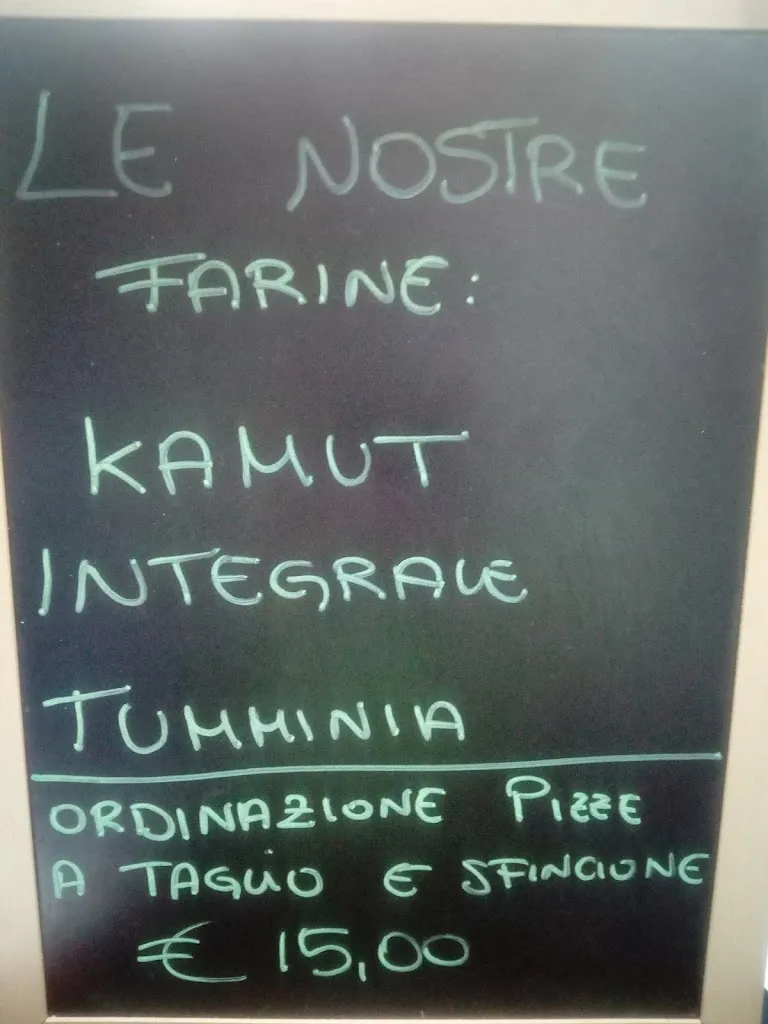 LE NOSTRE
FARINE:
KAMUT
INTEGRALE
TUMMINIA
ORDINAZIONE PIZZE
A TAGLIO E SFINCIONE
€ 15,00